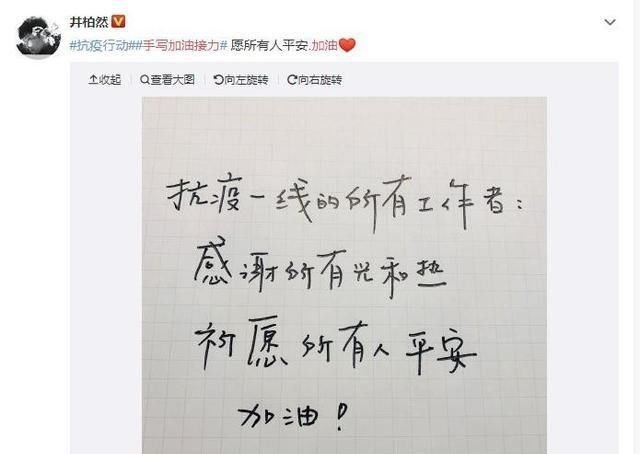 井柏然
#抗疫行动##手写加油接力# 愿所有人平安.加油
收起 查看大图 向左旋转 向右旋转
抗疫一线的所有工作者：
感谢所有光和热
祈愿所有人平安
加油！